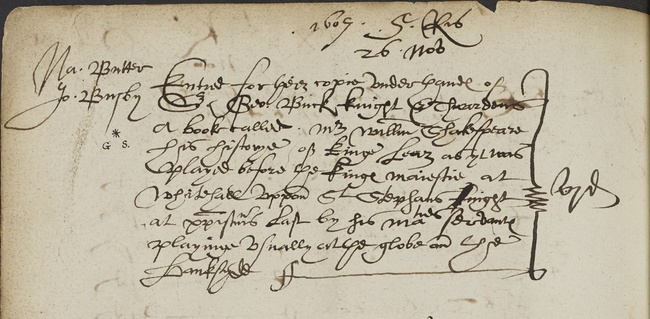 1607. 5. Ris
26. Nov
Na. Butter
Jo. Busby
Entred for their copie under handes of
Sr Geo. Buck knight & Thwardens
A booke called. Mr William Shakespeare
his historye of Kinge Lear as yt was
played before the kinges maiestie at
Whitehall uppon St Stephans night
at xpistmas Last by his maties servantes
playinge usually at the globe on the
Banksyde
vjd
G S.